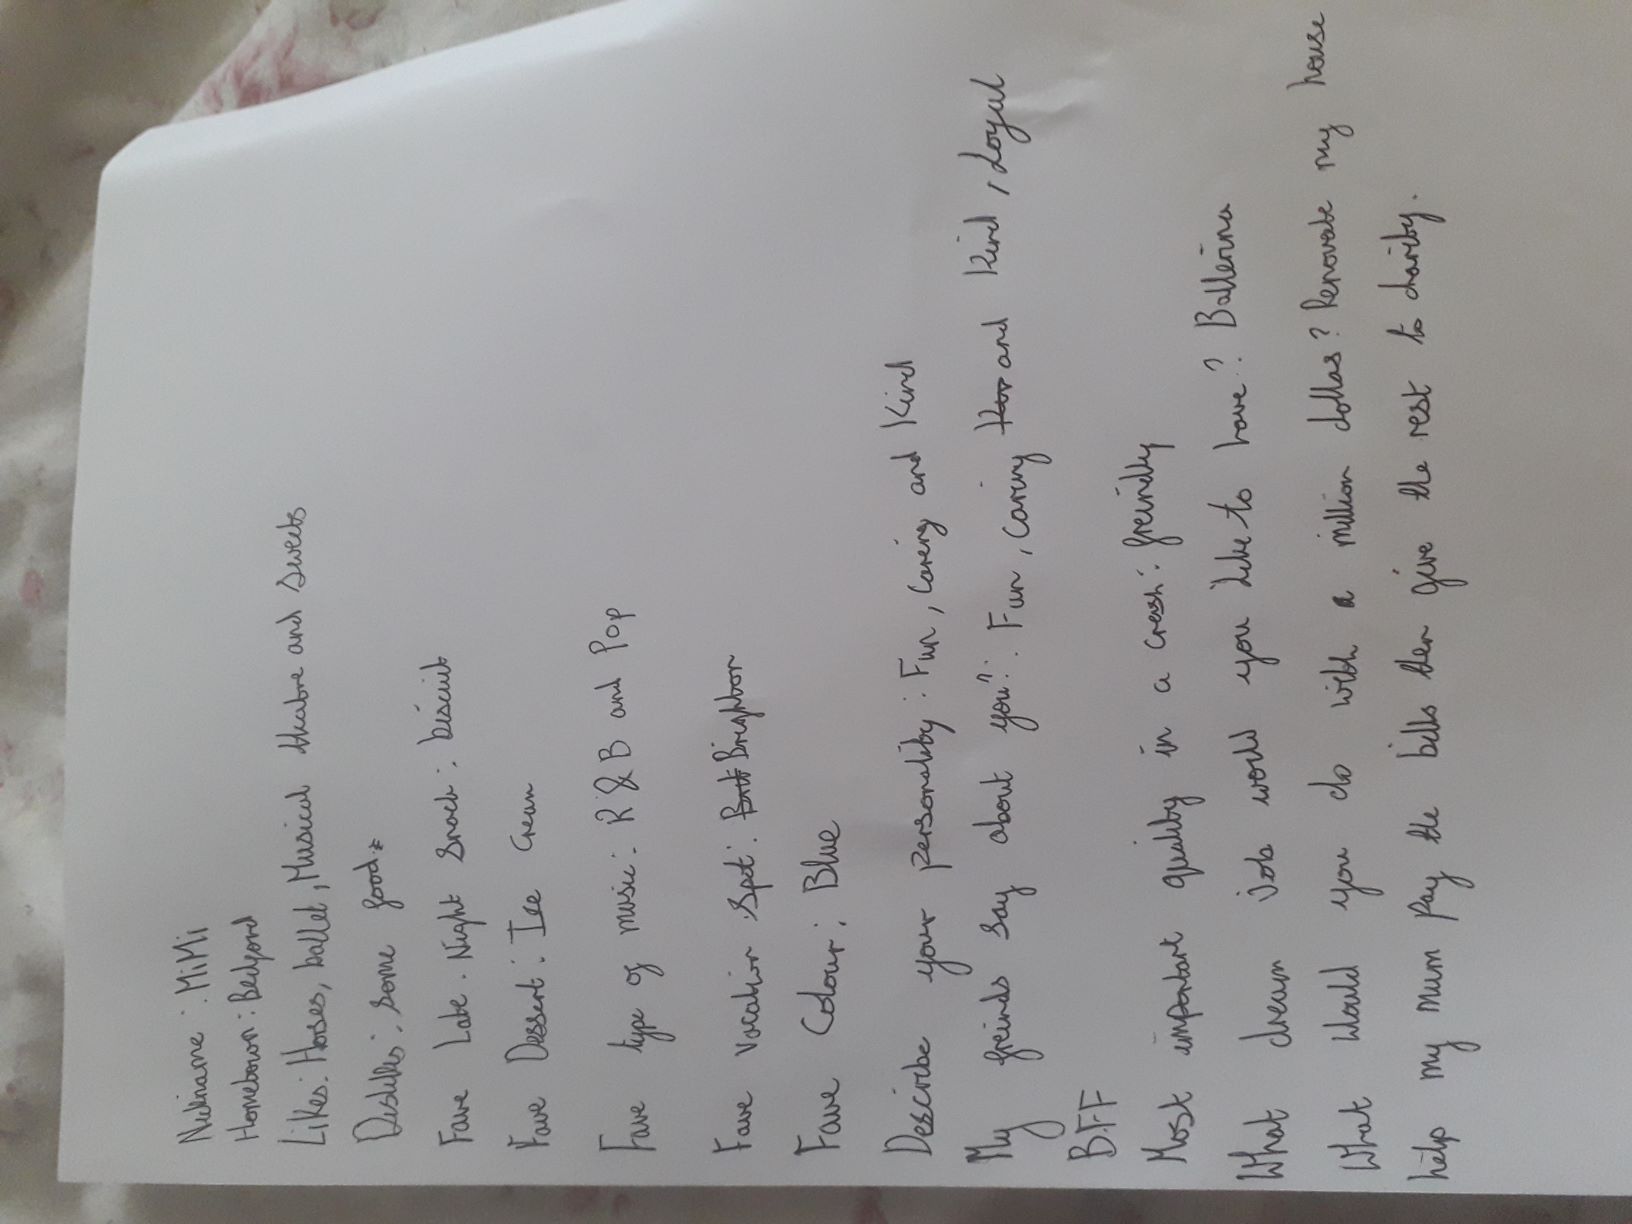 Nickname : MiMi
Hometown : Bedford
Likes: Horses, ballet, Musical theatre and Sweets
Dislikes: Some food.
Fave Late. Night Snack : biscuit
Fave Dessert : Ice Cream
Fave type of music : R & B and Pop
Fave Vocation Spot : Brighton
Fave Colour; Blue
Describe your personality : Fun, Caring and Kind
My freinds say about you? : Fun, caring and kind, loyal
BFF
Most important quality in a crush : freindly
What dream Job would you like to have? Ballerina
What would you do with a million dollas? Renovate my house
help my mum Pay the bills then give the rest to charity.